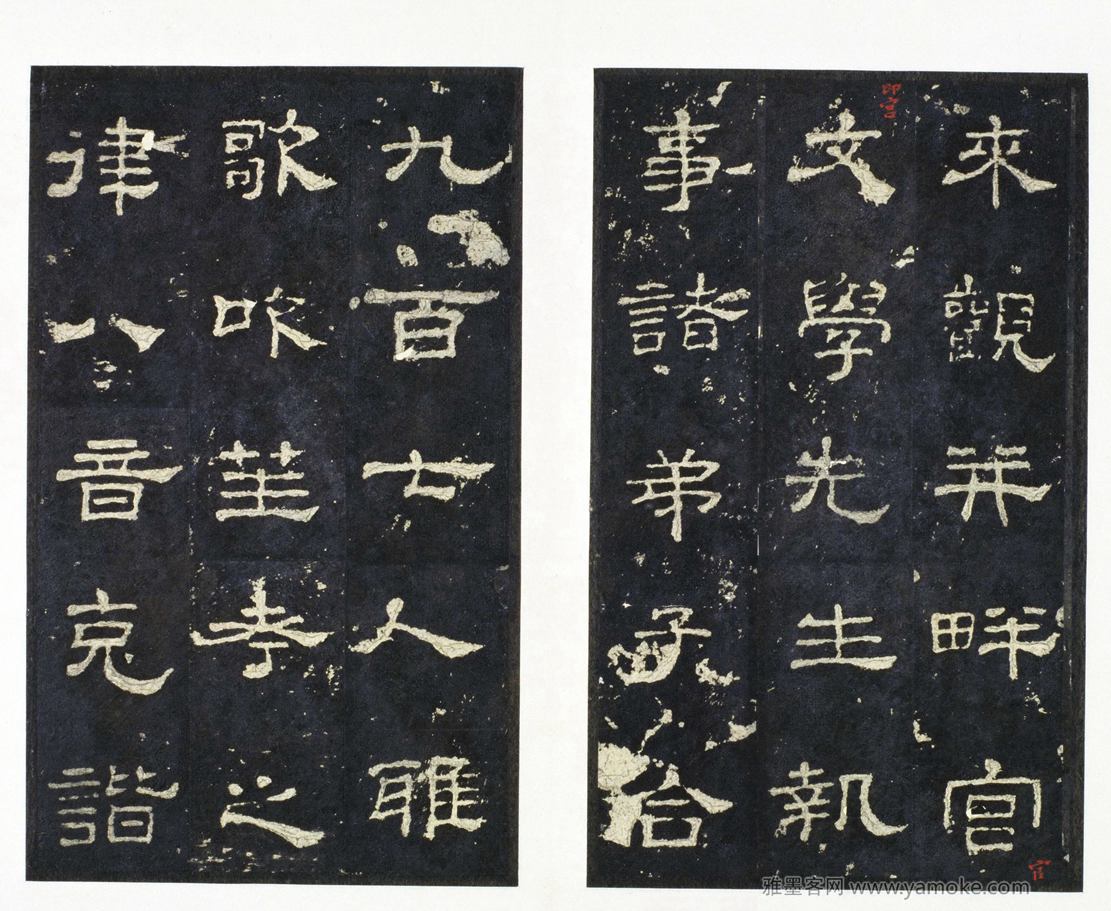 來觀并畔官
文學先生執
事諸弟子合
九百七人雅
歌吹笙考之
律八音克諧
官
雅墨客网 www.yamoke.com